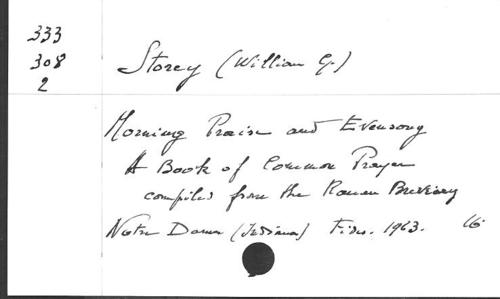 333
308
2
Storey (William G.)
Morning Praise and Evensong
A Book of Common Prayer
compiled from the Roman Breviary
Notre Dame (Indiana) Fides. 1963. 16